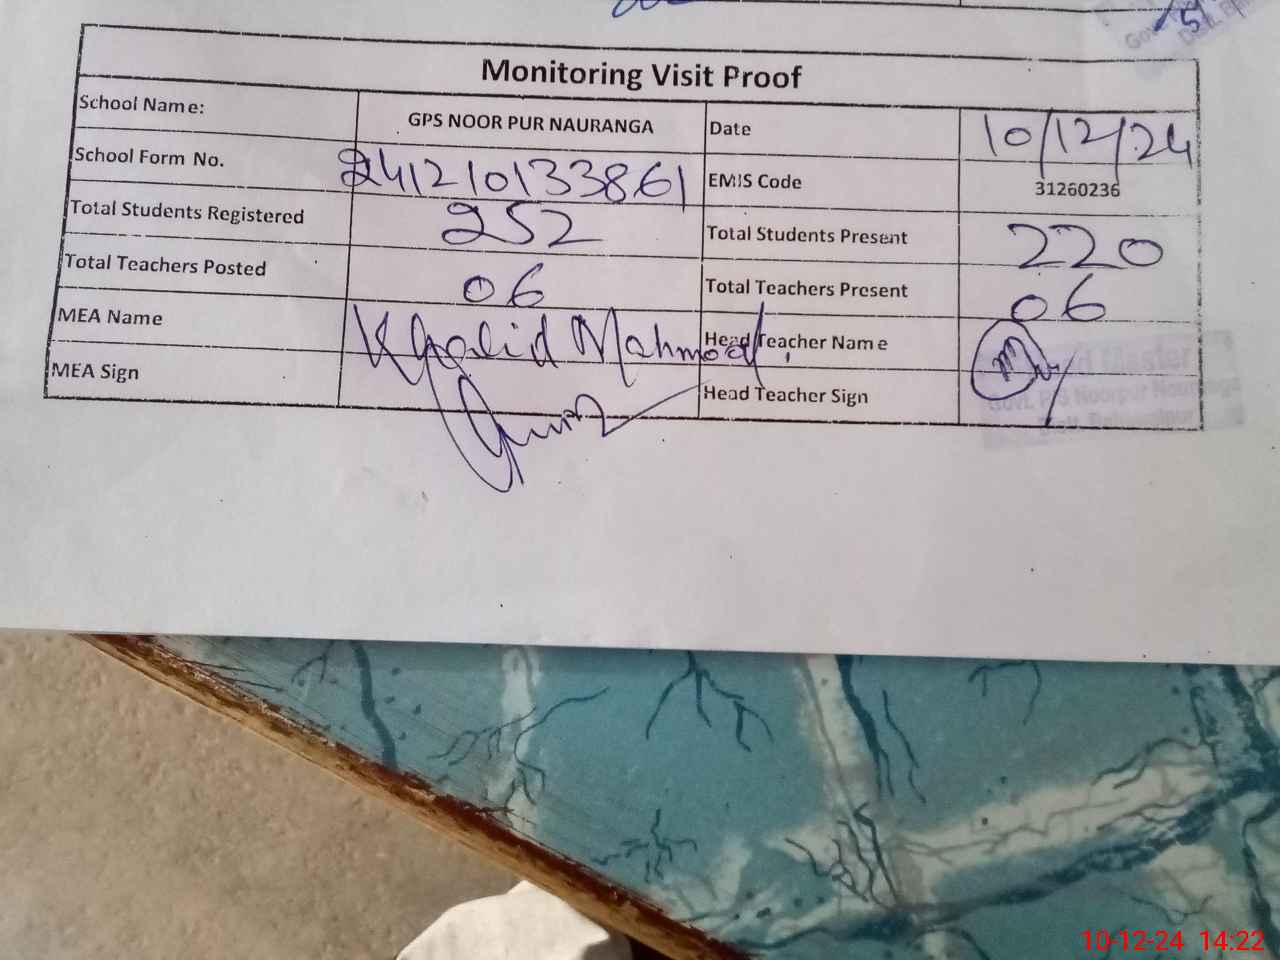 Monitoring Visit Proof
School Name: GPS NOOR PUR NAURANGA Date 10/12/24
School Form No. 2412101133861 EMIS Code 31260236
Total Students Registered 252 Total Students Present 220
Total Teachers Posted 06 Total Teachers Present 06
MEA Name Khalid Mahmood. Head Teacher Name
MEA Sign Head Teacher Sign
Head Master
Govt. P/S Noorpur Nauranga
10-12-24 14:22